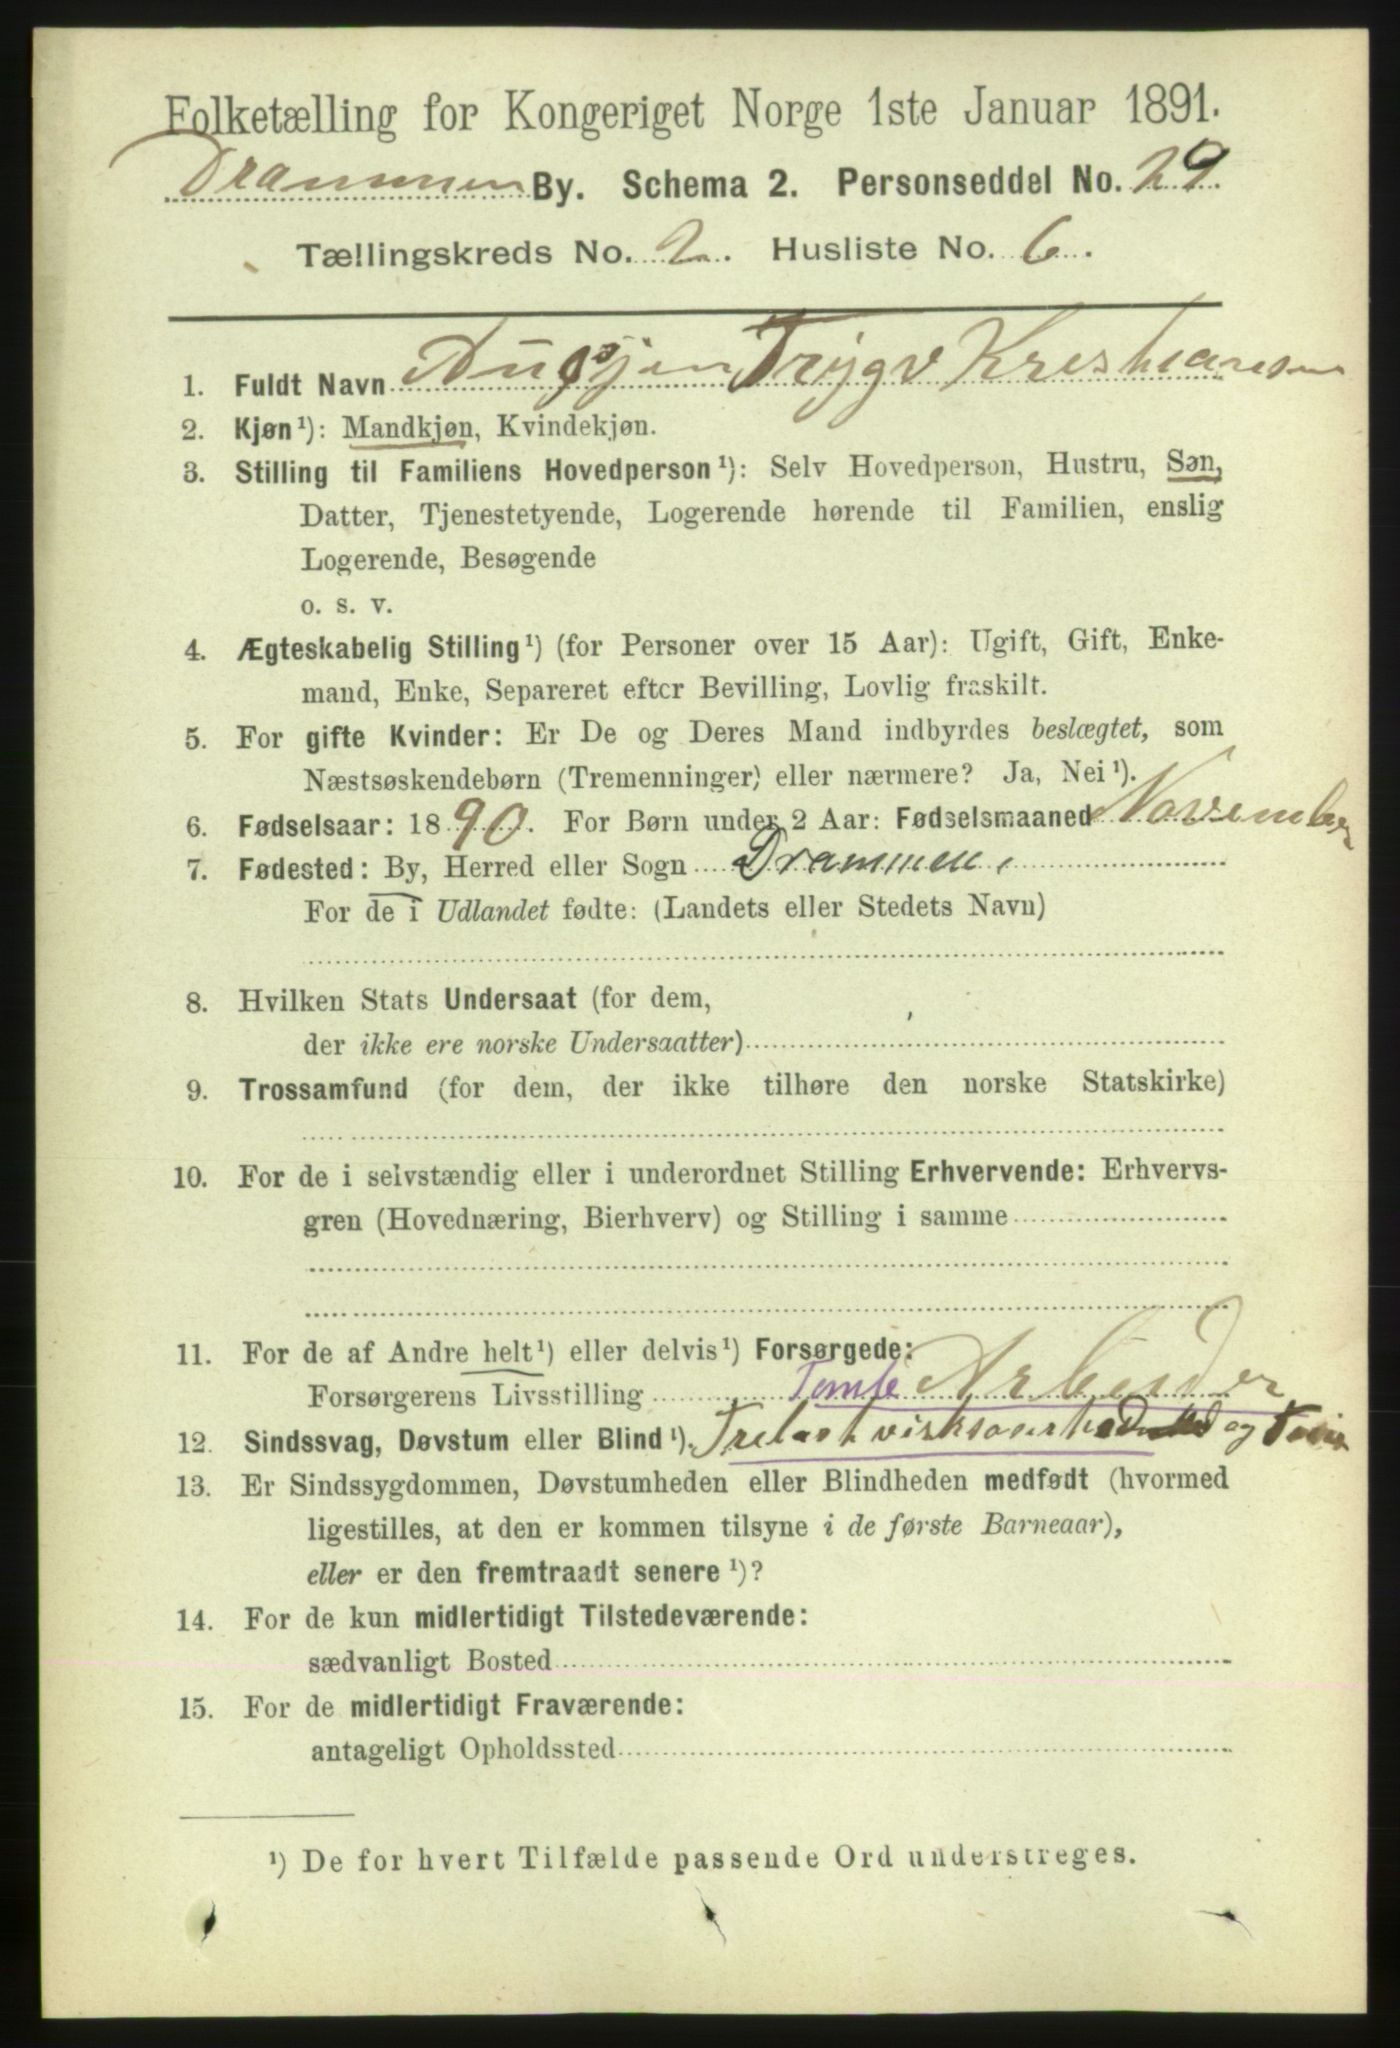 Folketælling for Kongeriget Norge 1ste Januar 1891.
Drammen By. Schema 2. Personseddel No. 29
Tællingskreds No. 2. Husliste No. 6.
1. Fuldt Navn Trygv Kreshiansen
2. Kjøn¹): Mandkjøn, Kvindekjøn.
3. Stilling til Familiens Hovedperson¹): Selv Hovedperson, Hustru, Søn,
Datter, Tjenestetyende, Logerende hørende til Familien, enslig
Logerende, Besøgende
o. s. v.
4. Ægteskabelig Stilling¹) (for Personer over 15 Aar): Ugift, Gift, Enke-
mand, Enke, Separeret efter Bevilling, Lovlig fraskilt.
5. For gifte Kvinder: Er De og Deres Mand indbyrdes beslægtet, som
Næstsøskendebørn (Tremenninger) eller nærmere? Ja, Nei¹).
6. Fødselsaar: 1890. For Børn under 2 Aar: Fødselsmaaned November
7. Fødested: By, Herred eller Sogn Drammen,
For de i Udlandet fødte: (Landets eller Stedets Navn)
8. Hvilken Stats Undersaat (for dem,
der ikke ere norske Undersaatter)
9. Trossamfund (for dem, der ikke tilhøre den norske Statskirke)
10. For de i selvstændig eller i underordnet Stilling Erhvervende: Erhvervs-
gren (Hovednæring, Bierhverv) og Stilling i samme
11. For de af Andre helt¹) eller delvis¹) Forsørgede:
Forsørgerens Livsstilling Tomte Arbeider
12. Sindssvag, Døvstum eller Blind¹). Trelast og
13. Er Sindssygdommen, Døvstumheden eller Blindheden medfødt (hvormed
ligestilles, at den er kommen tilsyne i de første Barneaar),
eller er den fremtraadt senere¹)?
14. For de kun midlertidigt Tilstedeværende:
sædvanligt Bosted
15. For de midlertidigt Fraværende:
antageligt Opholdssted
¹) De for hvert Tilfælde passende Ord understreges.